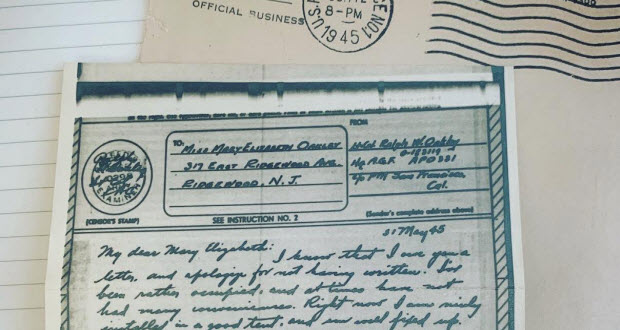 OFFICIAL BUSINESS
8-PM
1945
U.S.
NO.1
TO:
Miss Mary Elizabeth Oakley
317 East Ridgewood Ave.
Ridgewood, N.J.
FROM
Lt Col Ralph W. Oakley
Hq AGF APO 331
c/o PM San Francisco,
Cal.
(CENSOR'S STAMP)
SEE INSTRUCTION NO. 2
(Sender's complete address above)
31 May 45
My dear Mary Elizabeth:
I know that I owe you a
letter, and apologize for not having written. I've
been rather occupied, and at times have not
had many conveniences. Right now I am nicely
installed in a good tent, and am well fixed up.